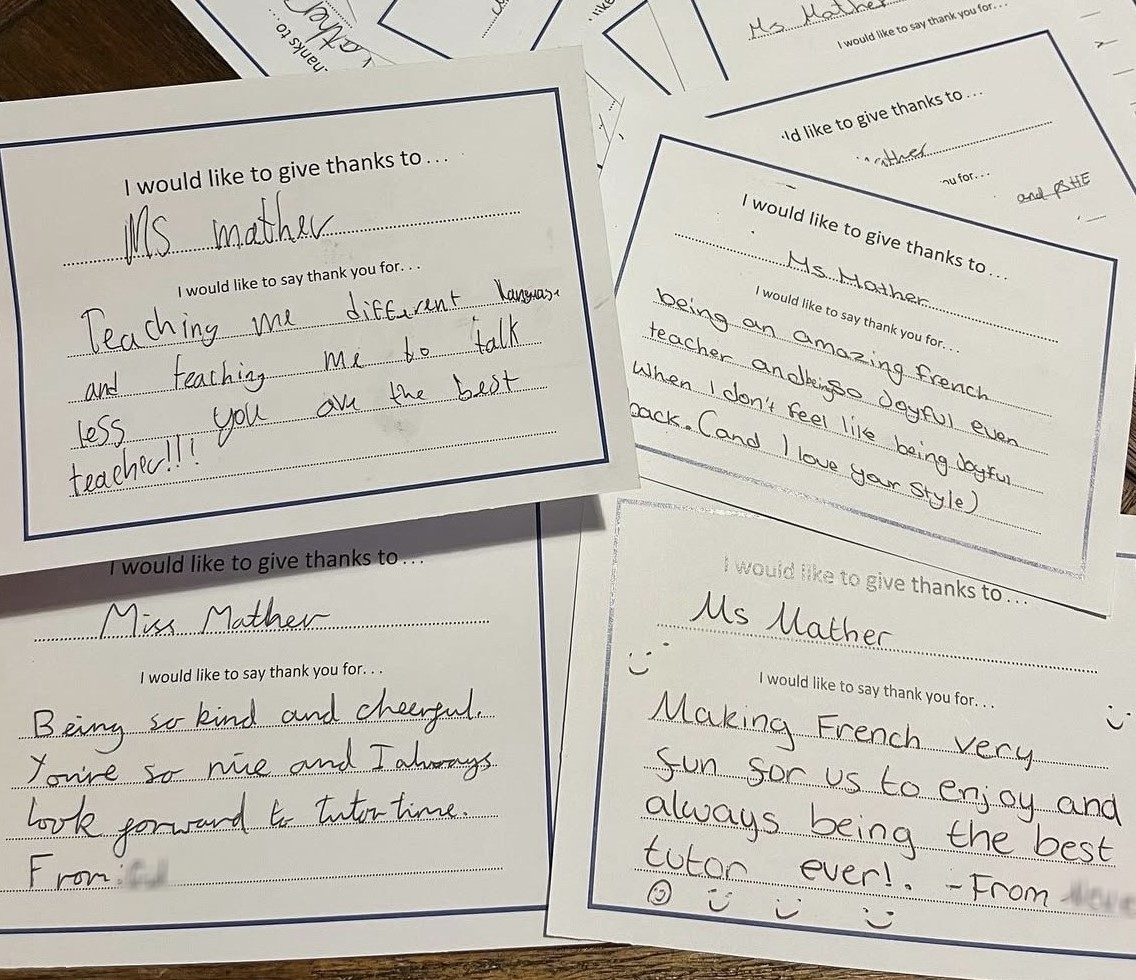 hanks to...
ather
Ms Mather
I would like to say thank you for...
'ld like to give thanks to...
ather
nu for...
and PSHE
I would like to give thanks to...
Ms mather
I would like to say thank you for...
Teaching me different language
and teaching me to talk
less you are the best
teacher!!!
I would like to give thanks to...
Ms. Mather
I would like to say thank you for...
being an amazing french
teacher and being so Joyful even
When I don't feel like being Joyful
back. (and I love your Style)
I would like to give thanks to...
Miss Mather
I would like to say thank you for...
Being so kind and cheerful.
You're so nice and I always
look forward to tutor time.
From:
I would like to give thanks to...
Ms Mather
I would like to say thank you for...
Making French very
fun for us to enjoy and
always being the best
tutor ever!. - From